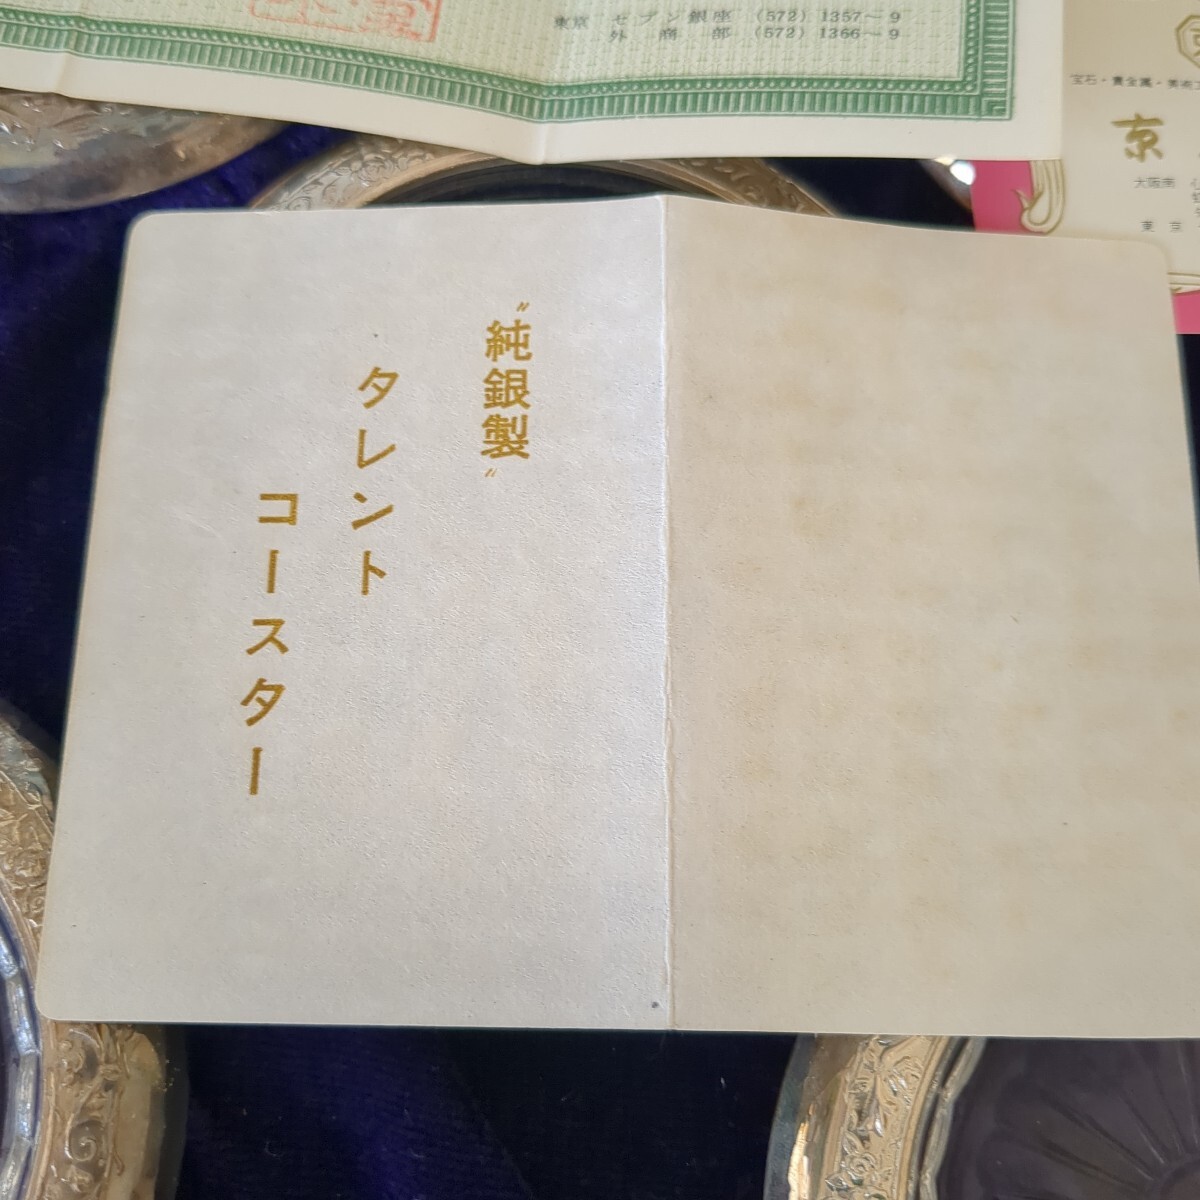 東京 セブン銀座 (572) 1357〜9
外商部 (572) 1366〜9
宝石・貴金属・美術
京
大阪南
東京
〝純銀製〟
タレント
コースター